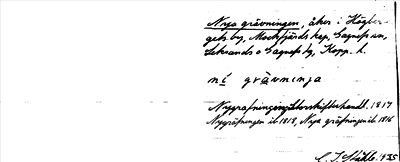 Nya grävningen, åker i Högber-
gets by, Mockfjärds kap, Gagnefs sn,
Leksands o Gagnefs tg, Kopp. l.
ný grävninja
Nygrafningen, Storskifteshandl. 1817
Nygräfningen ib 1818, Nya gräfningen ib 1816
C. I. Ståhle 1935